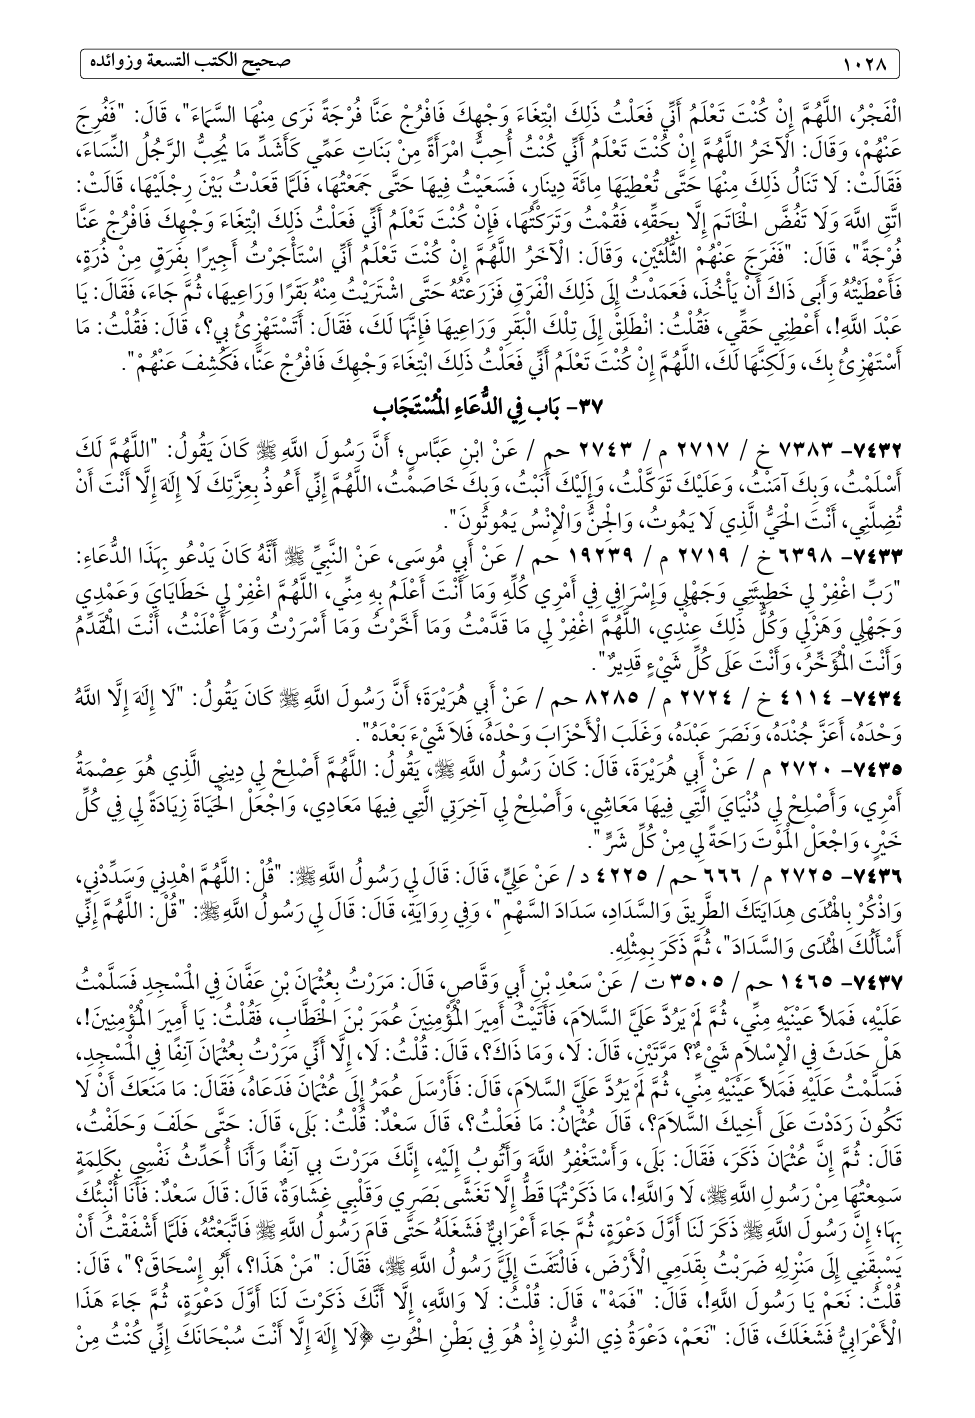 ١٠٢٨ صحيح الكتب التسعة وزوائده
الْفَجْرُ، اللَّهُمَّ إِنْ كُنْتَ تَعْلَمُ أَنِّي فَعَلْتُ ذَلِكَ ابْتِغَاءَ وَجْهِكَ فَافْرُجْ عَنَّا فُرْجَةً نَرَى مِنْهَا السَّمَاءَ"، قَالَ: "فَفُرِجَ
عَنْهُمْ، وَقَالَ: الْآخَرُ اللَّهُمَّ إِنْ كُنْتَ تَعْلَمُ أَنِّي كُنْتُ أُحِبُّ امْرَأَةً مِنْ بَنَاتِ عَمِّي كَأَشَدِّ مَا يُحِبُّ الرَّجُلُ النِّسَاءَ،
فَقَالَتْ: لَا تَنَالُ ذَلِكَ مِنْهَا حَتَّى تُعْطِيَهَا مِائَةَ دِينَارٍ، فَسَعَيْتُ فِيهَا حَتَّى جَمَعْتُهَا، فَلَمَّا قَعَدْتُ بَيْنَ رِجْلَيْهَا، قَالَتْ:
اتَّقِ اللَّهَ وَلَا تَفُضَّ الْخَاتَمَ إِلَّا بِحَقِّهِ، فَقُمْتُ وَتَرَكْتُهَا، فَإِنْ كُنْتَ تَعْلَمُ أَنِّي فَعَلْتُ ذَلِكَ ابْتِغَاءَ وَجْهِكَ فَافْرُجْ عَنَّا
فُرْجَةً"، قَالَ: "فَفَرَجَ عَنْهُمْ الثُّلُثَيْنِ، وَقَالَ: الْآخَرُ اللَّهُمَّ إِنْ كُنْتَ تَعْلَمُ أَنِّي اسْتَأْجَرْتُ أَجِيرًا بِفَرَقٍ مِنْ ذُرَةٍ،
فَأَعْطَيْتُهُ وَأَبَى ذَاكَ أَنْ يَأْخُذَ، فَعَمَدْتُ إِلَى ذَلِكَ الْفَرَقِ فَزَرَعْتُهُ حَتَّى اشْتَرَيْتُ مِنْهُ بَقَرًا وَرَاعِيهَا، ثُمَّ جَاءَ، فَقَالَ: يَا
عَبْدَ اللَّهِ!، أَعْطِنِي حَقِّي، فَقُلْتُ: انْطَلِقْ إِلَى تِلْكَ الْبَقَرِ وَرَاعِيهَا فَإِنَّهَا لَكَ، فَقَالَ: أَتَسْتَهْزِئُ بِي؟، قَالَ: فَقُلْتُ: مَا
أَسْتَهْزِئُ بِكَ، وَلَكِنَّهَا لَكَ، اللَّهُمَّ إِنْ كُنْتَ تَعْلَمُ أَنِّي فَعَلْتُ ذَلِكَ ابْتِغَاءَ وَجْهِكَ فَافْرُجْ عَنَّا، فَكُشِفَ عَنْهُمْ".
٣٧- بَاب فِي الدُّعَاءِ الْمُسْتَجَاب
٧٤٣٢- ٧٣٨٣ خ / ٢٧١٧ م / ٢٧٤٣ حم / عَنْ ابْنِ عَبَّاسٍ؛ أَنَّ رَسُولَ اللَّهِ ﷺ كَانَ يَقُولُ: "اللَّهُمَّ لَكَ
أَسْلَمْتُ، وَبِكَ آمَنْتُ، وَعَلَيْكَ تَوَكَّلْتُ، وَإِلَيْكَ أَنَبْتُ، وَبِكَ خَاصَمْتُ، اللَّهُمَّ إِنِّي أَعُوذُ بِعِزَّتِكَ لَا إِلَهَ إِلَّا أَنْتَ أَنْ
تُضِلَّنِي، أَنْتَ الْحَيُّ الَّذِي لَا يَمُوتُ، وَالْجِنُّ وَالْإِنْسُ يَمُوتُونَ".
٧٤٣٣- ٦٣٩٨ خ / ٢٧١٩ م / ١٩٢٣٩ حم / عَنْ أَبِي مُوسَى، عَنْ النَّبِيِّ ﷺ أَنَّهُ كَانَ يَدْعُو بِهَذَا الدُّعَاءِ:
"رَبِّ اغْفِرْ لِي خَطِيئَتِي وَجَهْلِي وَإِسْرَافِي فِي أَمْرِي كُلِّهِ وَمَا أَنْتَ أَعْلَمُ بِهِ مِنِّي، اللَّهُمَّ اغْفِرْ لِي خَطَايَايَ وَعَمْدِي
وَجَهْلِي وَهَزْلِي وَكُلُّ ذَلِكَ عِنْدِي، اللَّهُمَّ اغْفِرْ لِي مَا قَدَّمْتُ وَمَا أَخَّرْتُ وَمَا أَسْرَرْتُ وَمَا أَعْلَنْتُ، أَنْتَ الْمُقَدِّمُ
وَأَنْتَ الْمُؤَخِّرُ، وَأَنْتَ عَلَى كُلِّ شَيْءٍ قَدِيرٌ".
٧٤٣٤- ٤١١٤ خ / ٢٧٢٤ م / ٨٢٨٥ حم / عَنْ أَبِي هُرَيْرَةَ؛ أَنَّ رَسُولَ اللَّهِ ﷺ كَانَ يَقُولُ: "لَا إِلَهَ إِلَّا اللَّهُ
وَحْدَهُ، أَعَزَّ جُنْدَهُ، وَنَصَرَ عَبْدَهُ، وَغَلَبَ الْأَحْزَابَ وَحْدَهُ، فَلَا شَيْءَ بَعْدَهُ".
٧٤٣٥- ٢٧٢٠ م / عَنْ أَبِي هُرَيْرَةَ، قَالَ: كَانَ رَسُولُ اللَّهِ ﷺ، يَقُولُ: اللَّهُمَّ أَصْلِحْ لِي دِينِي الَّذِي هُوَ عِصْمَةُ
أَمْرِي، وَأَصْلِحْ لِي دُنْيَايَ الَّتِي فِيهَا مَعَاشِي، وَأَصْلِحْ لِي آخِرَتِي الَّتِي فِيهَا مَعَادِي، وَاجْعَلْ الْحَيَاةَ زِيَادَةً لِي فِي كُلِّ
خَيْرٍ، وَاجْعَلْ الْمَوْتَ رَاحَةً لِي مِنْ كُلِّ شَرٍّ".
٧٤٣٦- ٢٧٢٥ م / ٦٦٦ حم / ٤٢٢٥ د / عَنْ عَلِيٍّ، قَالَ: قَالَ لِي رَسُولُ اللَّهِ ﷺ: "قُلْ: اللَّهُمَّ اهْدِنِي وَسَدِّدْنِي،
وَاذْكُرْ بِالْهُدَى هِدَايَتَكَ الطَّرِيقَ وَالسَّدَادِ، سَدَادَ السَّهْمِ"، وَفِي رِوَايَةٍ، قَالَ: قَالَ لِي رَسُولُ اللَّهِ ﷺ: "قُلْ: اللَّهُمَّ إِنِّي
أَسْأَلُكَ الْهُدَى وَالسَّدَادَ"، ثُمَّ ذَكَرَ بِمِثْلِهِ.
٧٤٣٧- ١٤٦٥ حم / ٣٥٠٥ ت / عَنْ سَعْدِ بْنِ أَبِي وَقَّاصٍ، قَالَ: مَرَرْتُ بِعُثْمَانَ بْنِ عَفَّانَ فِي الْمَسْجِدِ فَسَلَّمْتُ
عَلَيْهِ، فَمَلَأَ عَيْنَيْهِ مِنِّي، ثُمَّ لَمْ يَرُدَّ عَلَيَّ السَّلَامَ، فَأَتَيْتُ أَمِيرَ الْمُؤْمِنِينَ عُمَرَ بْنَ الْخَطَّابِ، فَقُلْتُ: يَا أَمِيرَ الْمُؤْمِنِينَ!،
هَلْ حَدَثَ فِي الْإِسْلَامِ شَيْءٌ؟ مَرَّتَيْنِ، قَالَ: لَا، وَمَا ذَاكَ؟، قَالَ: قُلْتُ: لَا، إِلَّا أَنِّي مَرَرْتُ بِعُثْمَانَ آنِفًا فِي الْمَسْجِدِ،
فَسَلَّمْتُ عَلَيْهِ فَمَلَأَ عَيْنَيْهِ مِنِّي، ثُمَّ لَمْ يَرُدَّ عَلَيَّ السَّلَامَ، قَالَ: فَأَرْسَلَ عُمَرُ إِلَى عُثْمَانَ فَدَعَاهُ، فَقَالَ: مَا مَنَعَكَ أَنْ لَا
تَكُونَ رَدَدْتَ عَلَى أَخِيكَ السَّلَامَ؟، قَالَ عُثْمَانُ: مَا فَعَلْتُ؟، قَالَ سَعْدٌ: قُلْتُ: بَلَى، قَالَ: حَتَّى حَلَفَ وَحَلَفْتُ،
قَالَ: ثُمَّ إِنَّ عُثْمَانَ ذَكَرَ، فَقَالَ: بَلَى، وَأَسْتَغْفِرُ اللَّهَ وَأَتُوبُ إِلَيْهِ، إِنَّكَ مَرَرْتَ بِي آنِفًا وَأَنَا أُحَدِّثُ نَفْسِي بِكَلِمَةٍ
سَمِعْتُهَا مِنْ رَسُولِ اللَّهِ ﷺ، لَا وَاللَّهِ!، مَا ذَكَرْتُهَا قَطُّ إِلَّا تَغَشَّى بَصَرِي وَقَلْبِي غِشَاوَةٌ، قَالَ: قَالَ سَعْدٌ: فَأَنَا أُنْبِئُكَ
بِهَا؛ إِنَّ رَسُولَ اللَّهِ ﷺ ذَكَرَ لَنَا أَوَّلَ دَعْوَةٍ، ثُمَّ جَاءَ أَعْرَابِيٌّ فَشَغَلَهُ حَتَّى قَامَ رَسُولُ اللَّهِ ﷺ فَاتَّبَعْتُهُ، فَلَمَّا أَشْفَقْتُ أَنْ
يَسْبِقَنِي إِلَى مَنْزِلِهِ ضَرَبْتُ بِقَدَمِي الْأَرْضَ، فَالْتَفَتَ إِلَيَّ رَسُولُ اللَّهِ ﷺ، فَقَالَ: "مَنْ هَذَا؟، أَبُو إِسْحَاقَ؟"، قَالَ:
قُلْتُ: نَعَمْ يَا رَسُولَ اللَّهِ!، قَالَ: "فَمَهْ"، قَالَ: قُلْتُ: لَا وَاللَّهِ، إِلَّا أَنَّكَ ذَكَرْتَ لَنَا أَوَّلَ دَعْوَةٍ، ثُمَّ جَاءَ هَذَا
الْأَعْرَابِيُّ فَشَغَلَكَ، قَالَ: "نَعَمْ، دَعْوَةُ ذِي النُّونِ إِذْ هُوَ فِي بَطْنِ الْحُوتِ ﴿لَا إِلَهَ إِلَّا أَنْتَ سُبْحَانَكَ إِنِّي كُنْتُ مِنْ